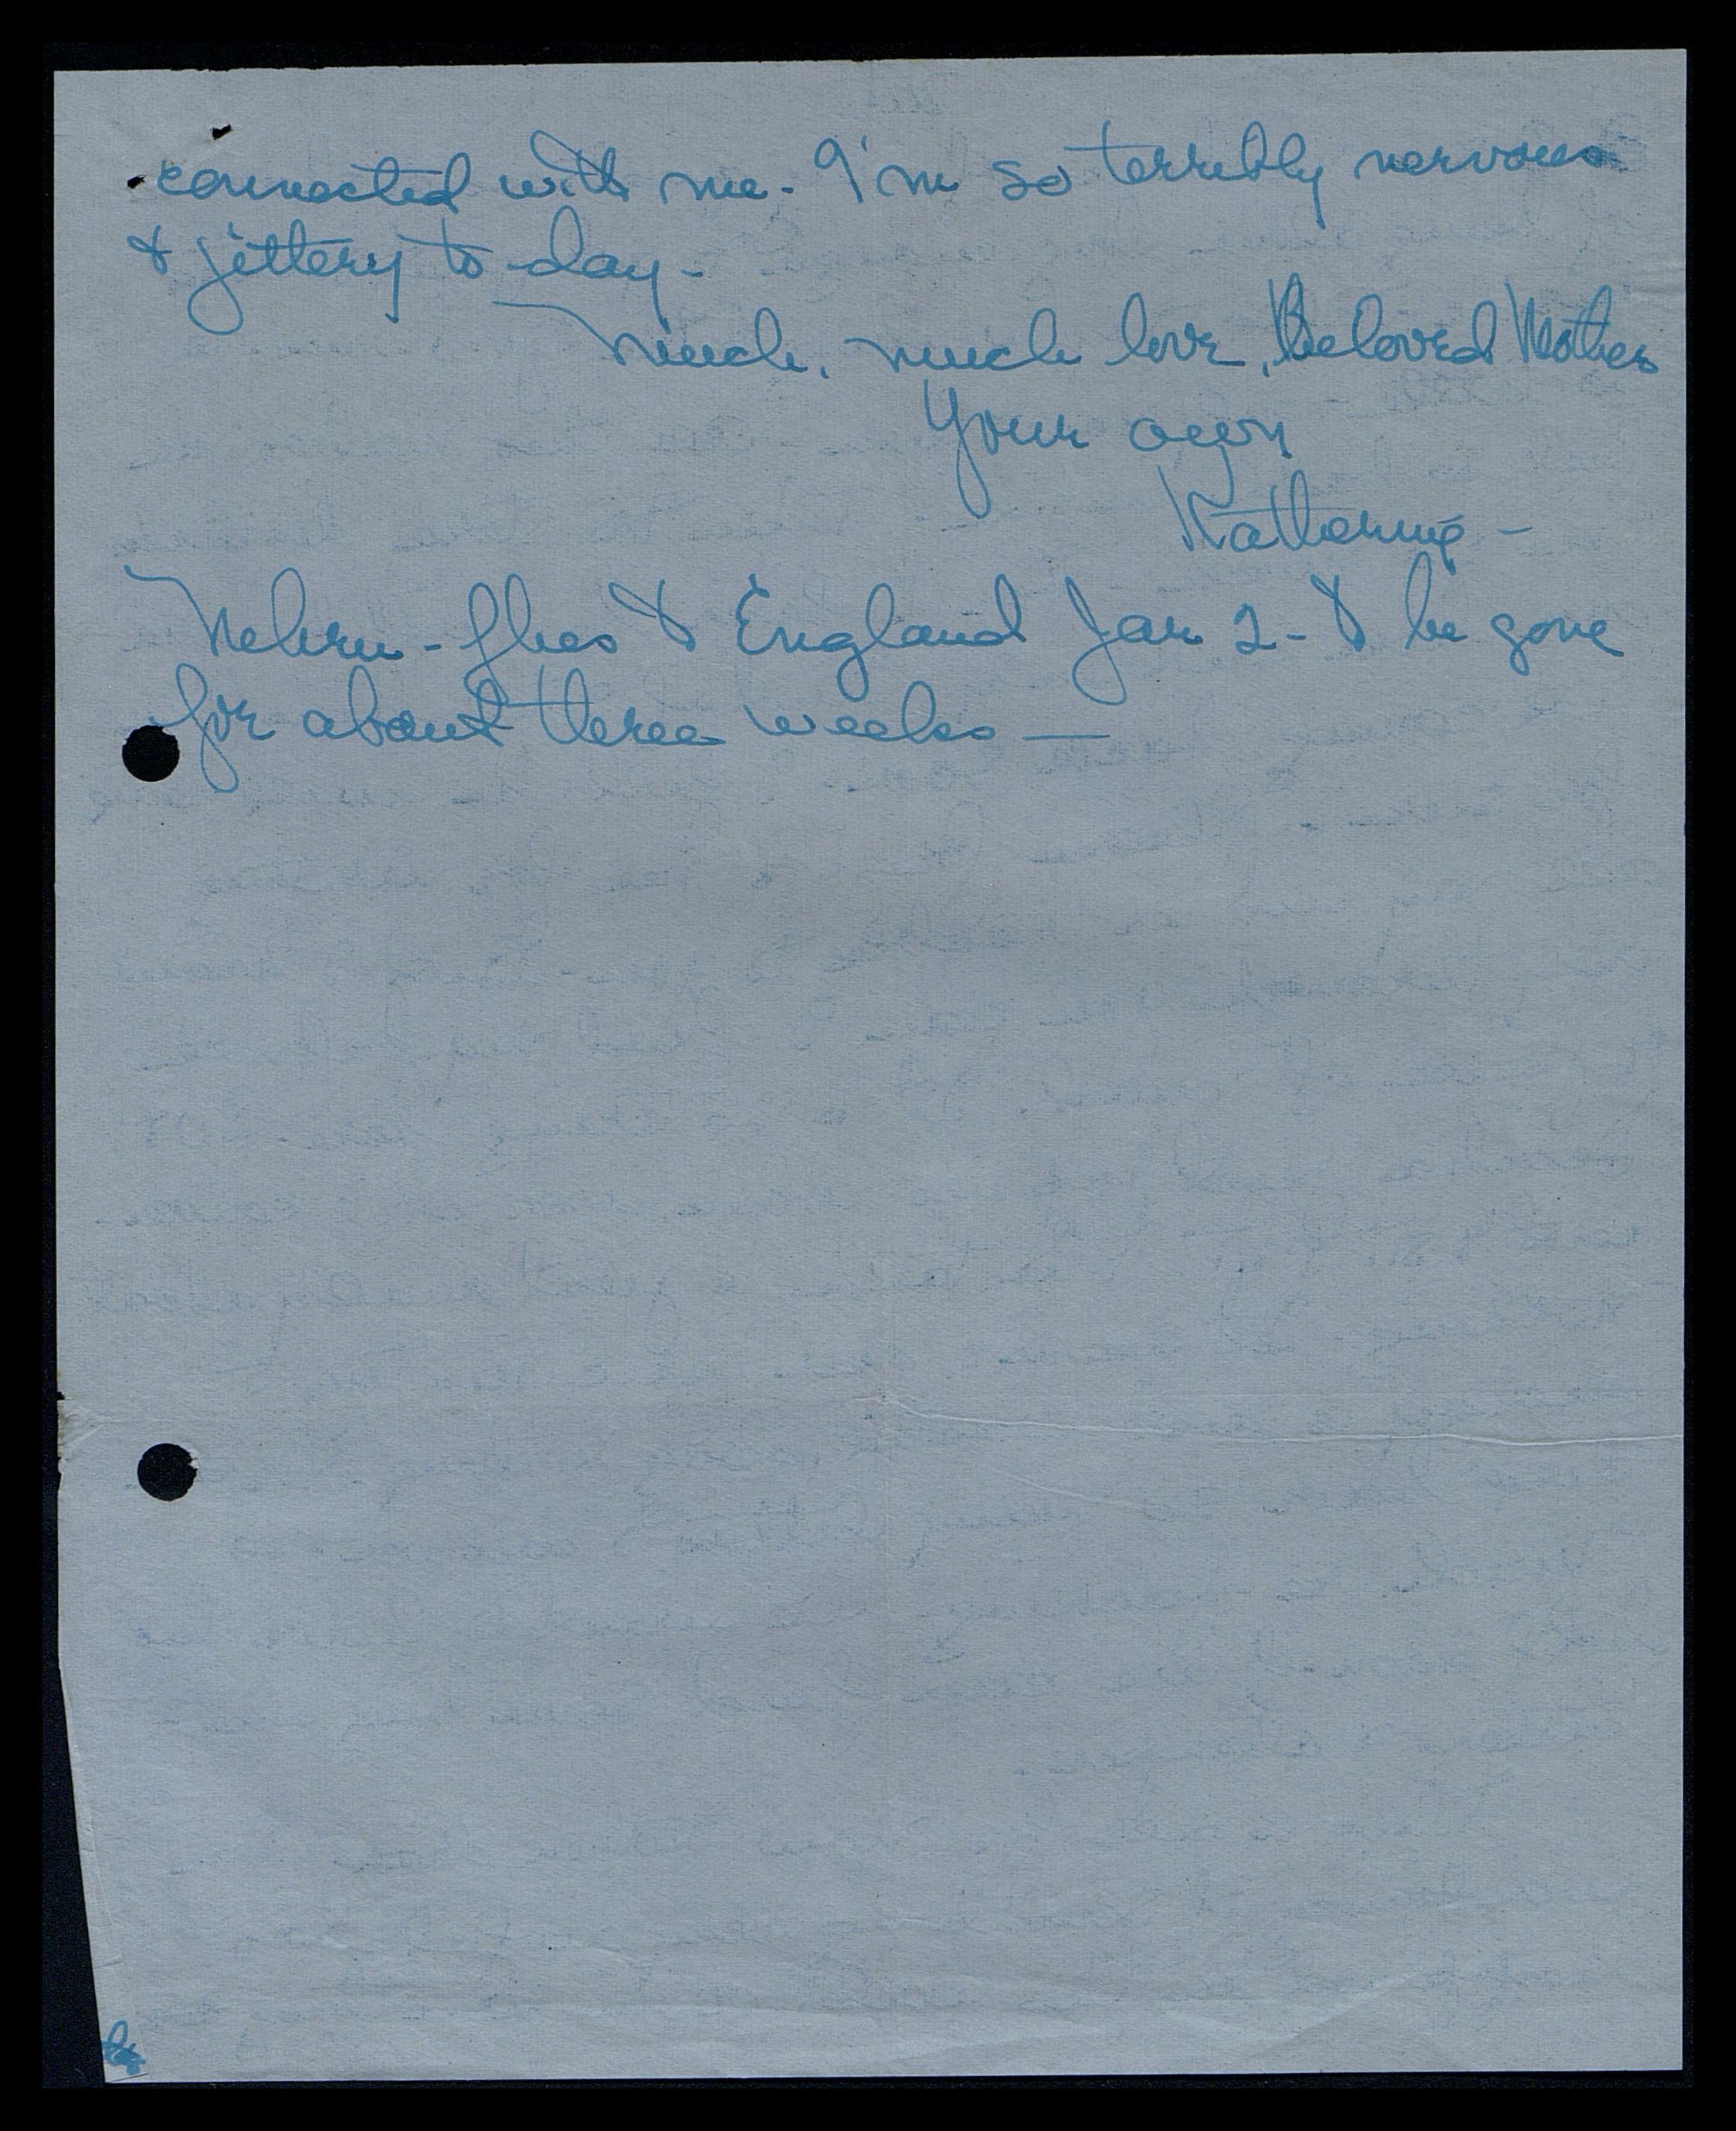 connected with me - I'm so terribly nervous
& jittery to-day -
Much, much love, Beloved Mother
Your own
Katharine -
Nehru - flies to England Jan 2 - to be gone
for about three weeks —